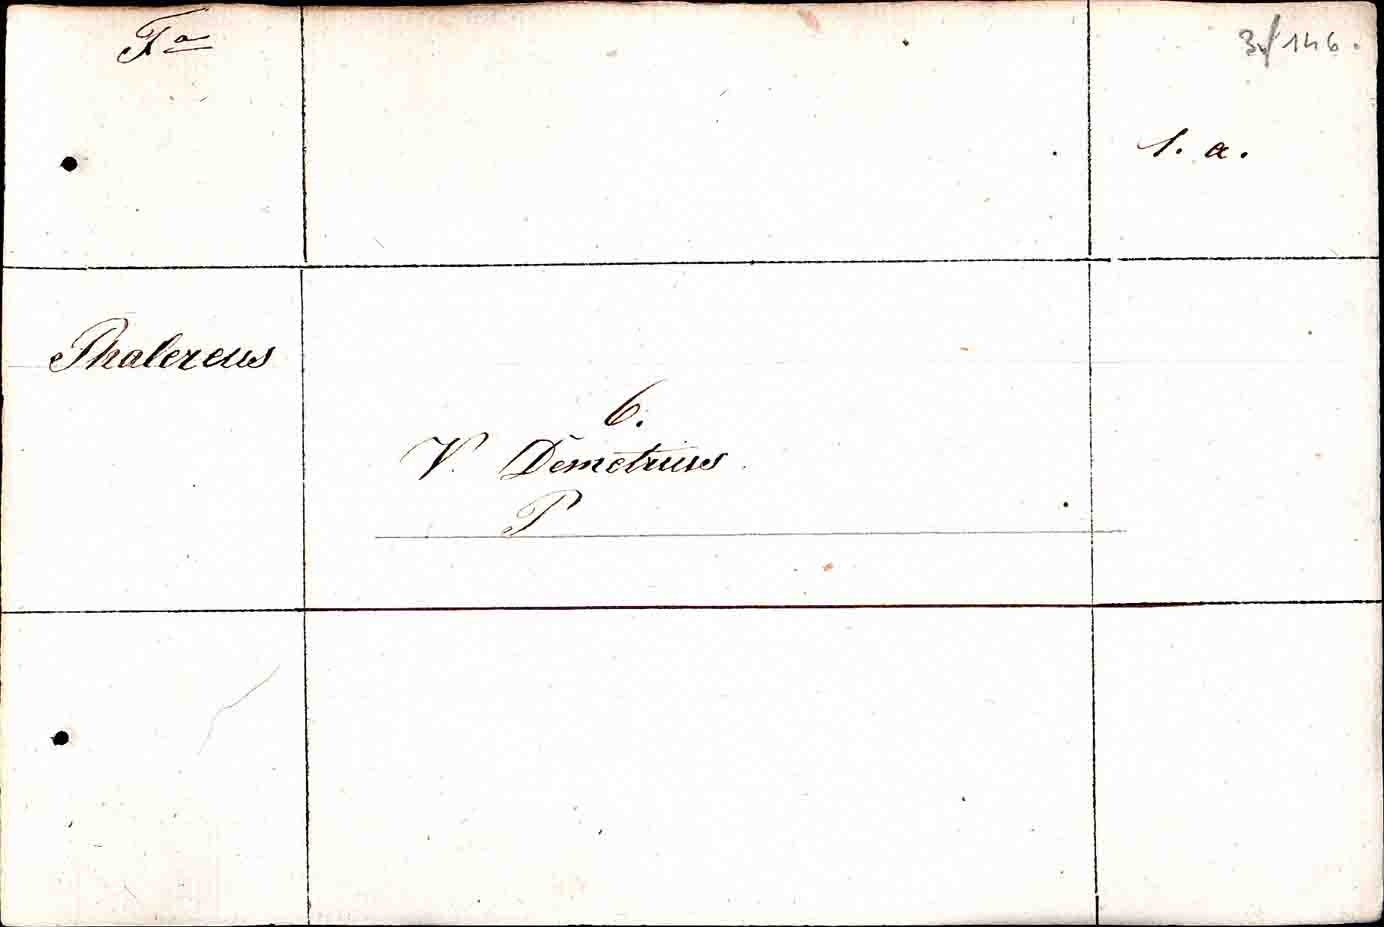 Fa
3./146.
s. a.
Phalereus
6.
V. Demetrius
P